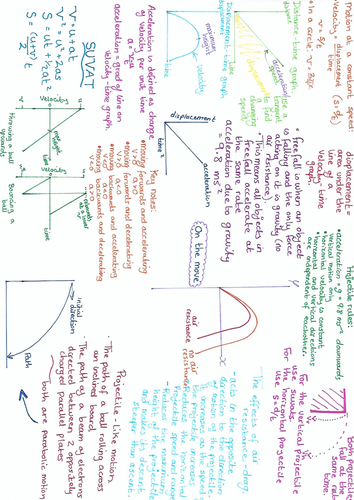 Motion at constant speed
velocity = displacement / time (s=d/t)
v = s/t
• In a circle: v =
Distance-time graph
Displacement-time graph
displacement =
area under the
line of a
velocity
time
graph
Projectile rules:
• acceleration = g = 9.8 ms⁻² downwards
vertical motion only
• horizontal velocity is constant
• horizontal and vertical directions
are independent of eachother.
Both projectiles
fall at the
same rate
For the vertical projectile
use suvats.
For the horizontal projectile
use s=d/t
Acceleration is defined as change
of velocity per unit time
acceleration = grad of line on
velocity-time graph.
velocity
• free fall is when an object
is falling and the only force
acting on it is gravity (no
air resistance)
• This means all objects in
free fall accelerate at
the same rate
acceleration due to gravity
= 9.8 ms⁻²
displacement
acceleration
time²
On the move
y
x
air
resistance
no air
resistance
The effect of air
resistance: drag
- acts in the opposite
direction to the direction
of motion of the projectile
- it increases as the speed of
the projectile increases
Projectile speed and range
- Reduces the maximum
height of the projectile
and makes its descent
steeper than ascent.
SUVAT
v = u + at
v² = u² + 2as
s = ut + ½at²
s = (u+v)/2 t
Key notes
•moving forwards and accelerating
v>0 a>0
•moving forwards and decelerating
v>0 a<0
•moving backwards and accelerating
v<0 a<0
•moving backwards and decelerating
v<0 a>0
velocity
Throwing a ball
upwards
velocity
Bouncing a
ball
Initial
direction
Path
Projectile-like motion.
• The path of a ball rolling across
an inclined board
• The path of a beam of electrons
directed between 2 oppositely
charged parallel plates
both are parabolic motion